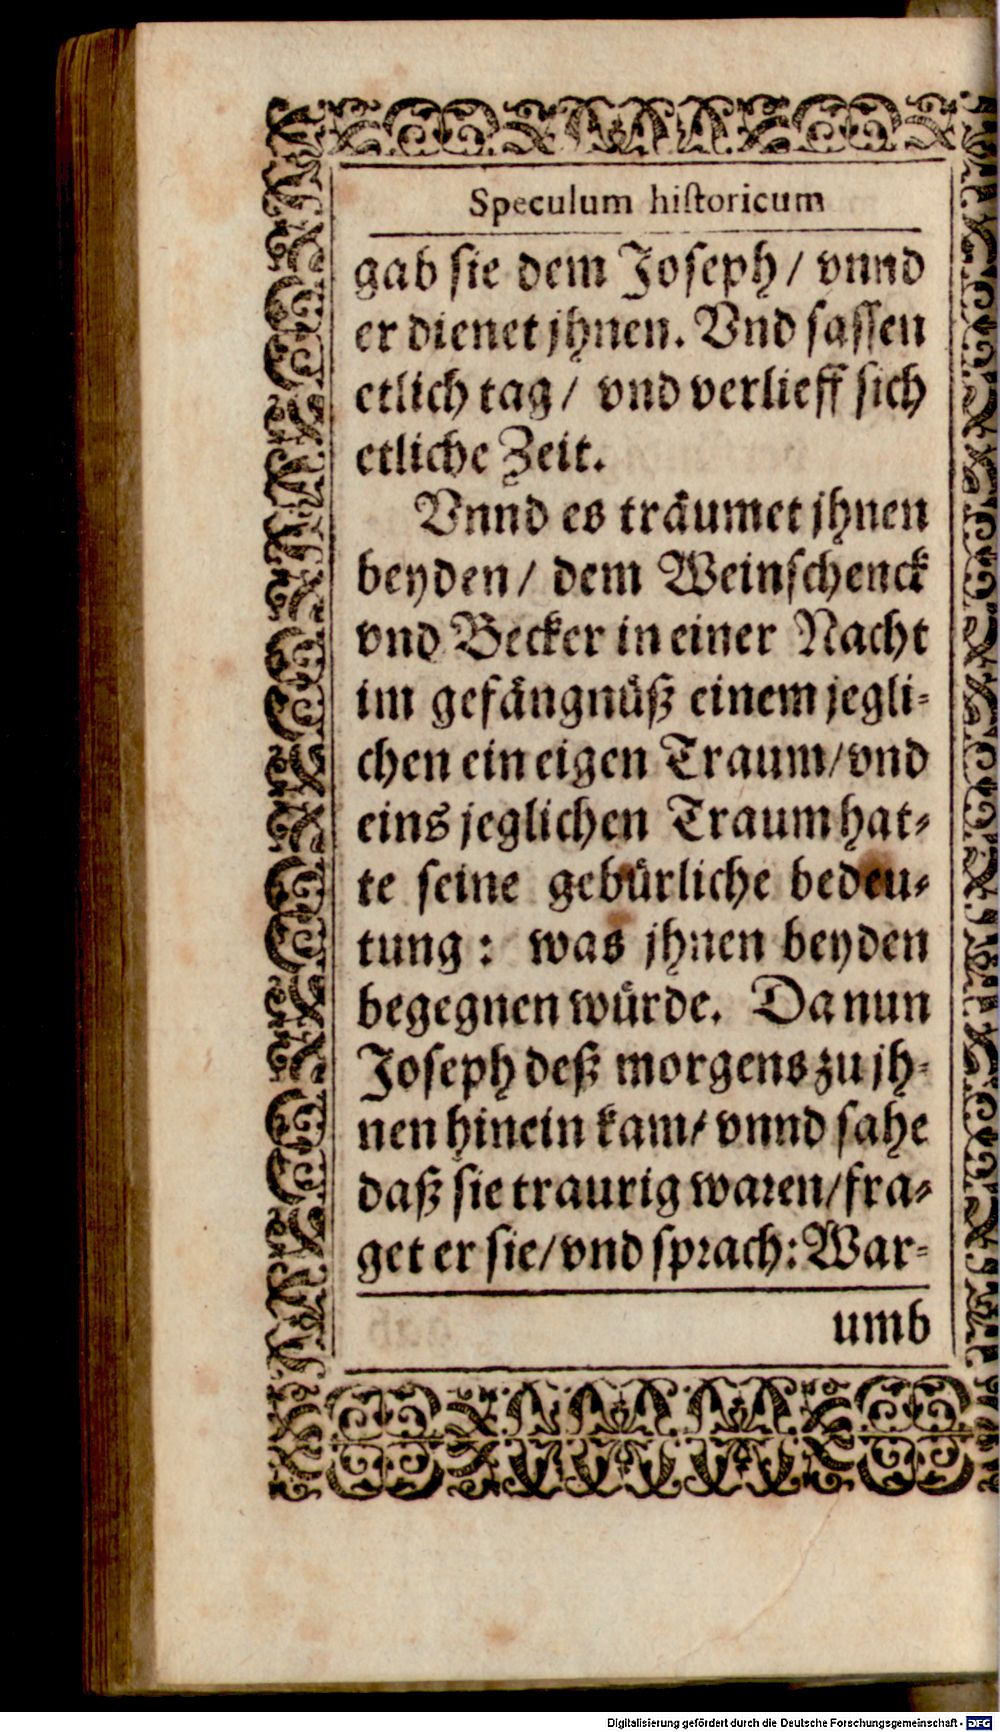 Speculum hiſtoricum
gab ſie dem Joſeph / vnnd
er dienet jhnen. Vnd ſaſſen
etlich tag / vnd verlieff ſich
etliche Zeit.
Vnnd es träumet jhnen
beyden / dem Weinſchenck
vnd Becker in einer Nacht
im gefängnüß einem jegli-
chen ein eigen Traum / vnd
eins jeglichen Traum hat-
te ſeine gebürliche bedeu-
tung: was jhnen beyden
begegnen würde. Da nun
Joſeph deß morgens zu jh-
nen hinein kam / vnnd ſahe
daß ſie traurig waren / fra-
get er ſie / vnd ſprach: War-
umb
Digitalisierung gefördert durch die Deutsche Forschungsgemeinschaft - DFG